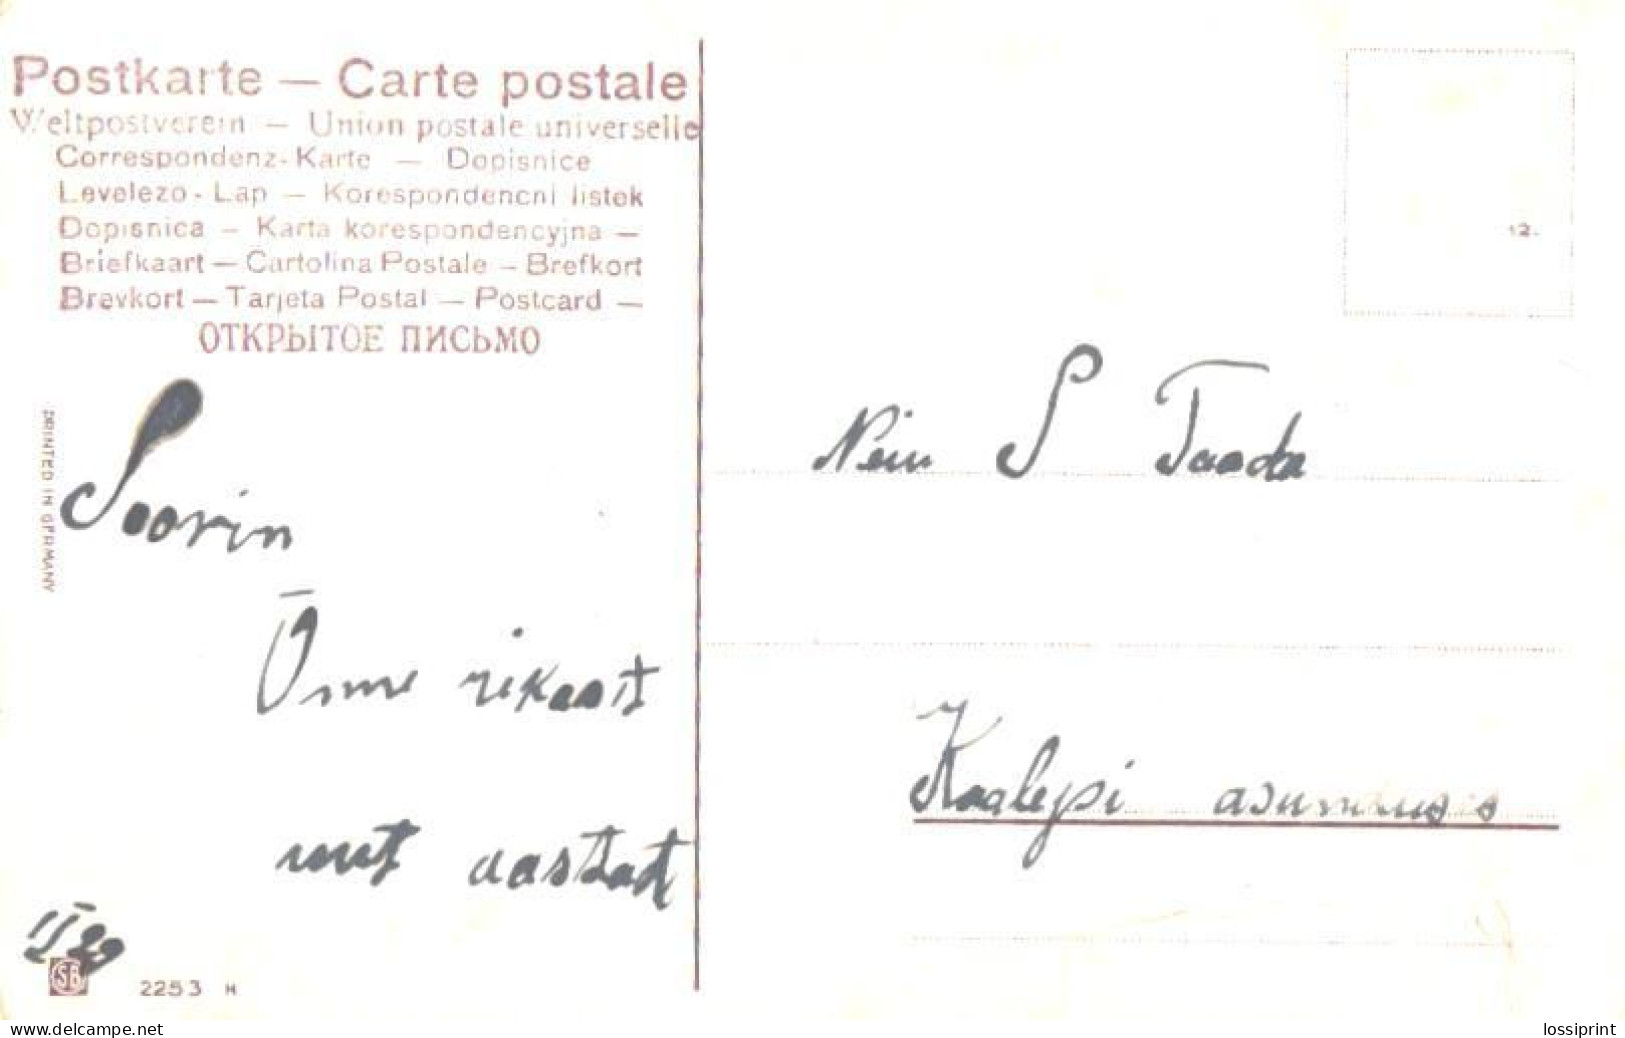 Postkarte — Carte postale
Weltpostverein — Union postale universelle
Correspondenz-Karte — Dopisnice
Levelezo-Lap — Korespondencni listek
Dopisnica — Karta korespondencyjna —
Briefkaart — Cartolina Postale — Brefkort
Brevkort — Tarjeta Postal — Postcard —
ОТКРЫТОЕ ПИСЬМО
12.
PRINTED IN GERMANY
Soovin
Õnne rikast
uut aastat
Nein S Taada
Kaalepi asunduses
SB
2253 H
www.delcampe.net
lossiprint